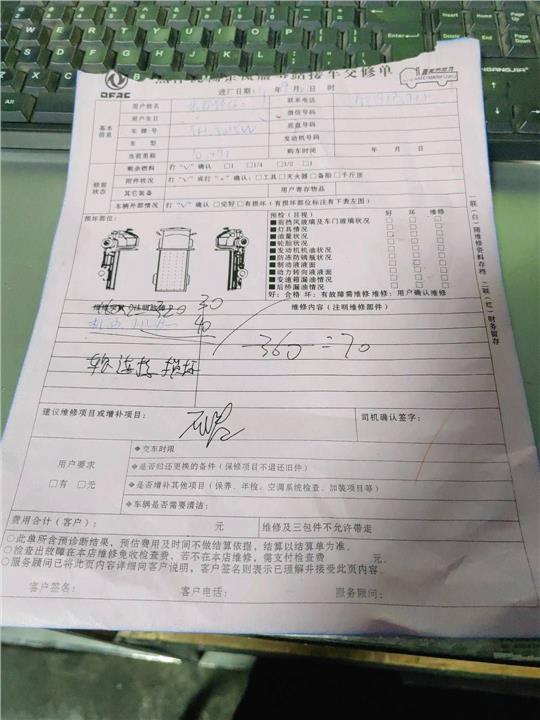 站接车交修单
DFAC
进厂日期: 月 日 时
基本信息
用户姓名 联系电话
用户生日 微信号码
车牌号 底盘号码
车型 发动机号码
当前里程 购车时间 年 月 日
检验状态
剩余燃料 打“√”确认 □1 □1/4 □1/2 □1
附件状况 打“√”或打“×”确认: □工具□灭火器□备胎□千斤顶
其它装备 用户寄存物品
车辆外部情况 打“√”确认□完好□有损坏(有损坏部位标注有下表左图)
损坏部位: 预检(目视) 好 坏 维修
■前挡风玻璃及车门玻璃状况 □ □ □
■灯具情况 □ □ □
■油量状况 □ □ □
■轮胎状况 □ □ □
■发动机机油状况 □ □ □
■防冻防锈瓶状况 □ □ □
■制动液液面 □ □ □
■动力转向液液面 □ □ □
■变速箱漏油情况 □ □ □
■后桥漏油情况 □ □ □
好: 合格 坏: 有故障需维修 维修: 用户确认维修
维修内容(注明维修部件)
30
机油
40
360 = 70
软连接 损坏
建议维修项目或增补项目: 司机确认签字:
用户要求
□有 □无
◆交车时限
◆是否归还更换的备件(保修项目不退还旧件)
◆是否增补其他项目(保养、年检、空调系统检查、加装项目等)
◆车辆是否需要清洁:
费用合计(客户): 元 维修及三包件不允许带走
○此单所含预诊断结果,预估费用及时间不做结算依据,结算以结算单为准。
○检查出故障在本店维修免收检查费,若不在本店维修,需支付检查费 元。
○服务顾问已将此页内容详细向客户说明,客户签名则表示已理解并接受此页内容。
客户签名: 客户电话: 服务顾问:
一联(白)随维修资料存档 二联(红)财务留存